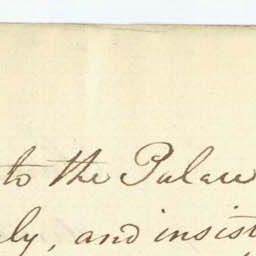 to the Palace
ly, and insist